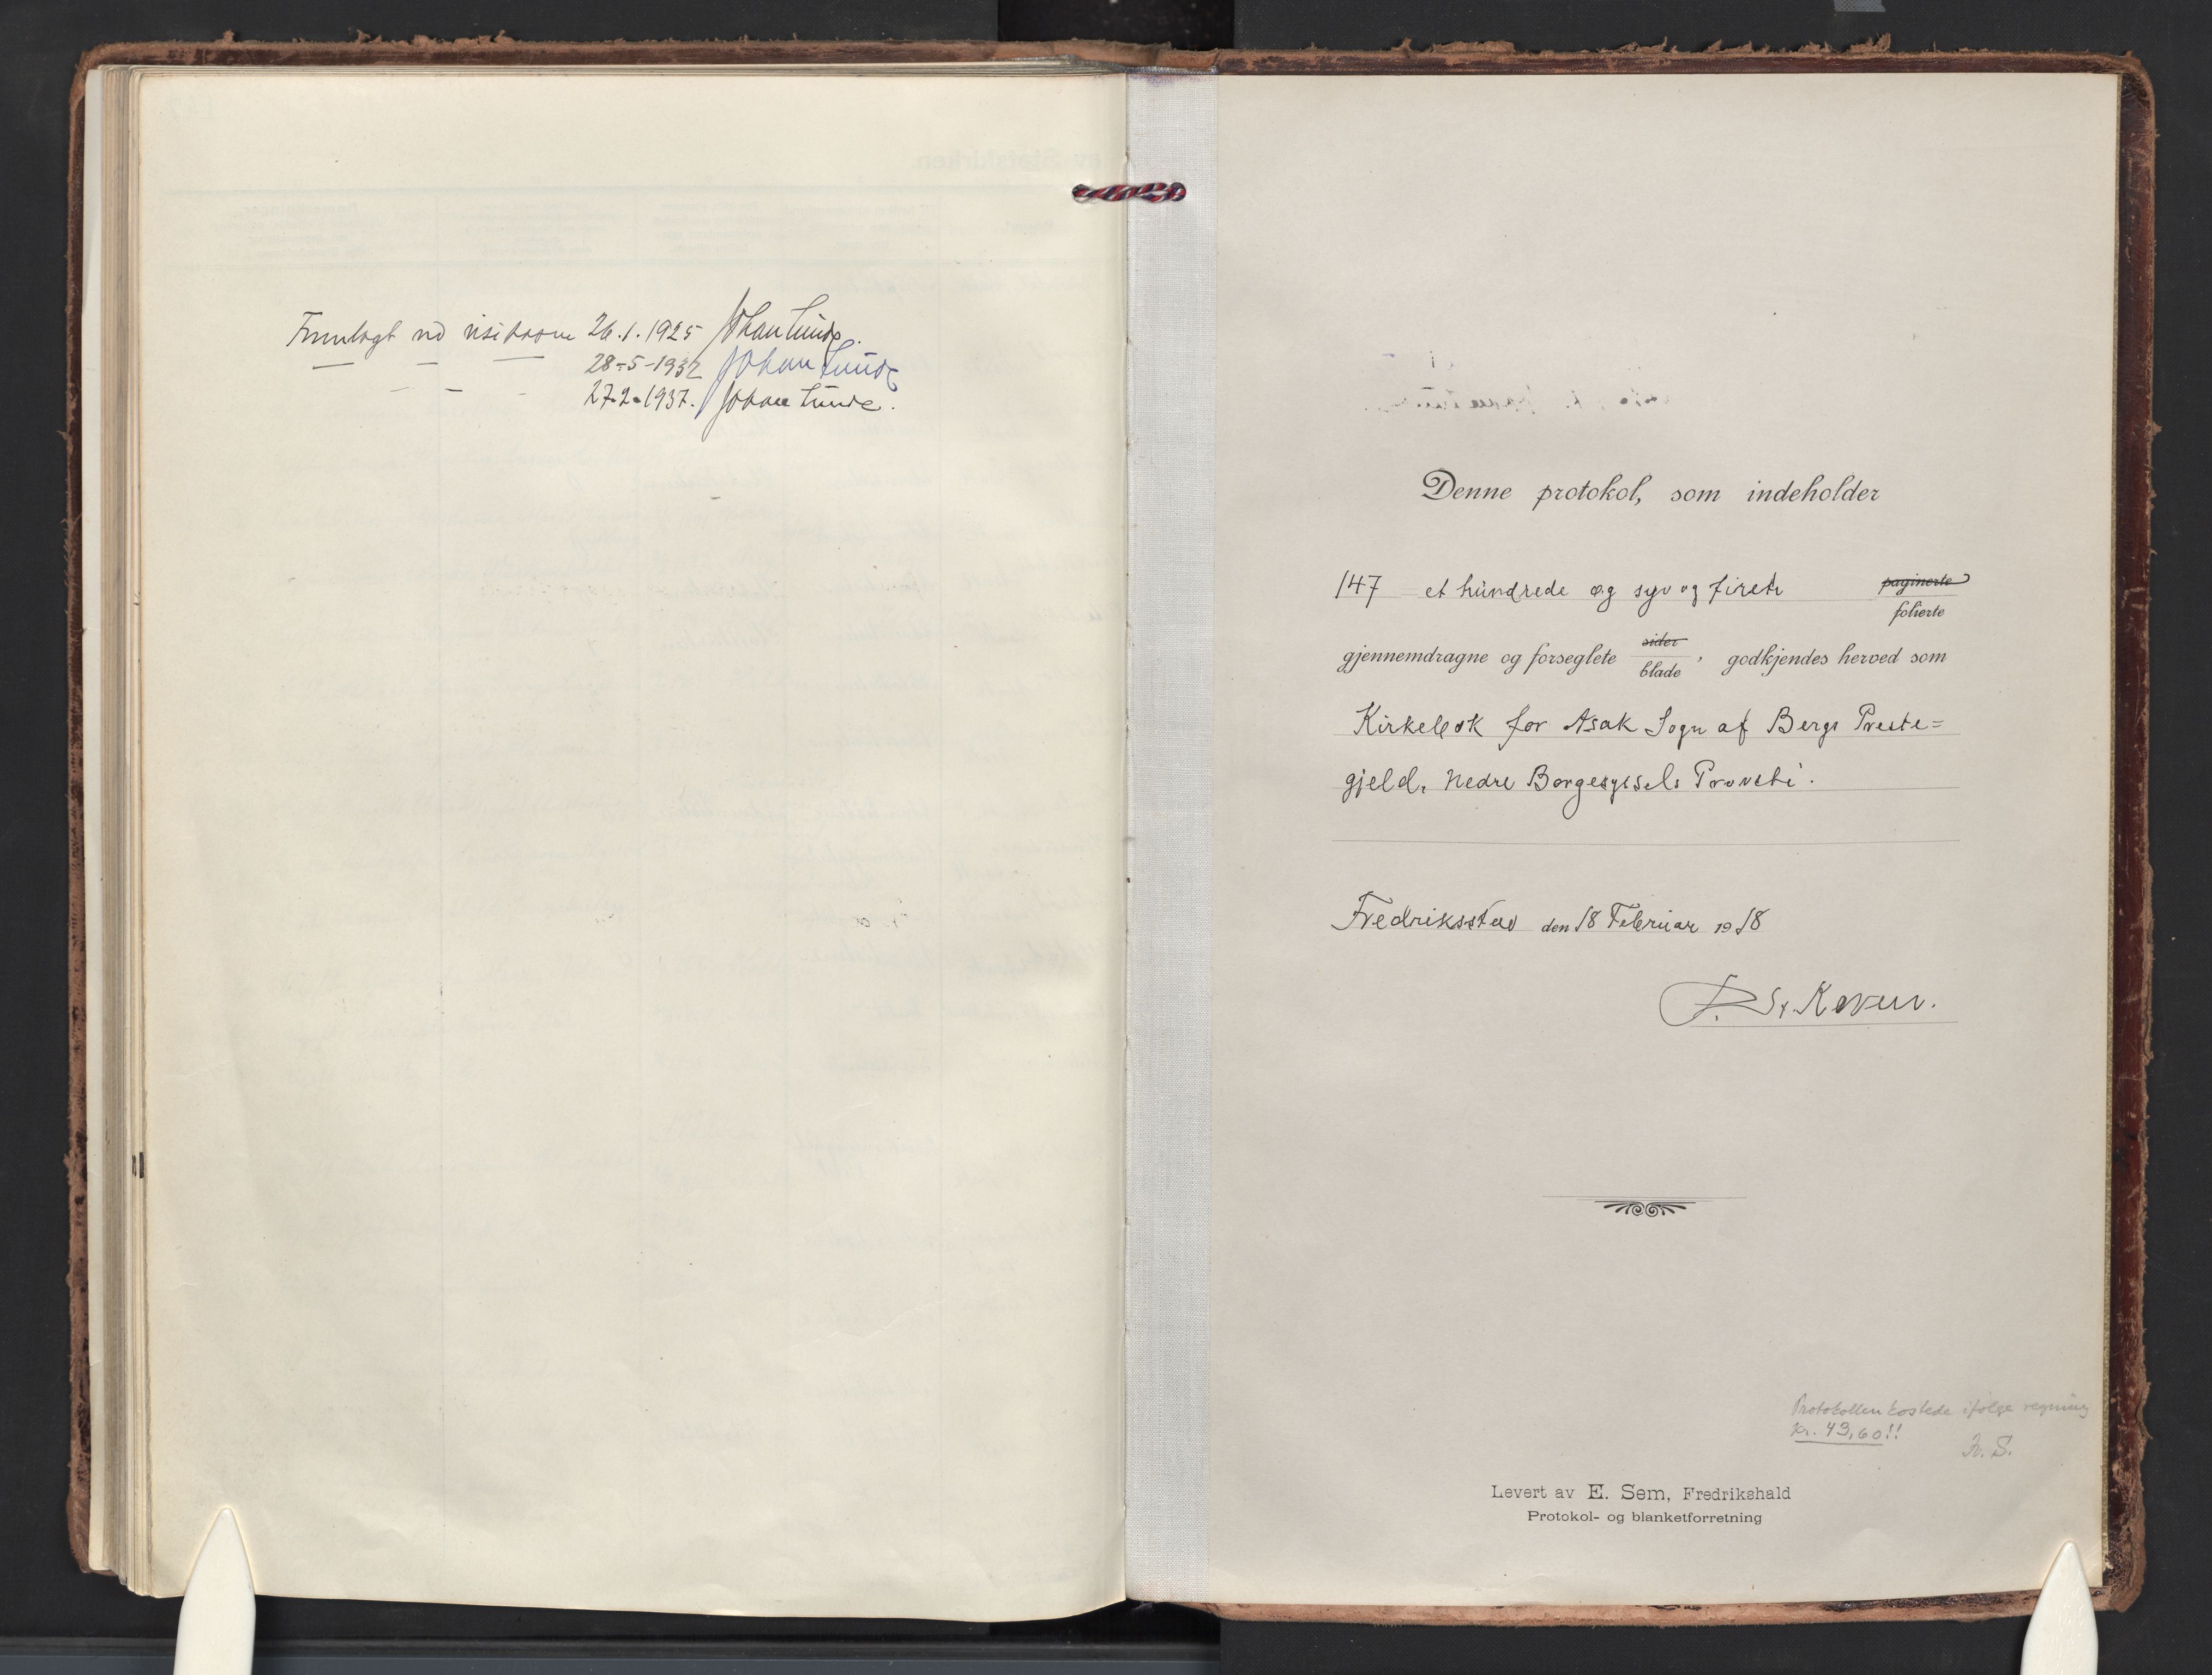 Fremlagt ved visitasen 26.1.1925 Johan Lunde.
— — — 28-5-1932 Johan Lunde
— — - 27.2.1937. Johan Lunde.
Denne protokol, som indeholder
147 et hundrede og syv og fireti paginerte
folierte
gjennemdragne og forseglete sider
blade, godkjendes herved som
Kirkebok for Asak Sogn af Bergs Preste=
gjeld, Nedre Borgesyssels Provsti.
Fredriksstad den 18 Februar 1918
Protokollen kostede ifølge regning
Kr. 43,60!!
Levert av E. Sem, Fredrikshald
Protokol- og blanketforretning